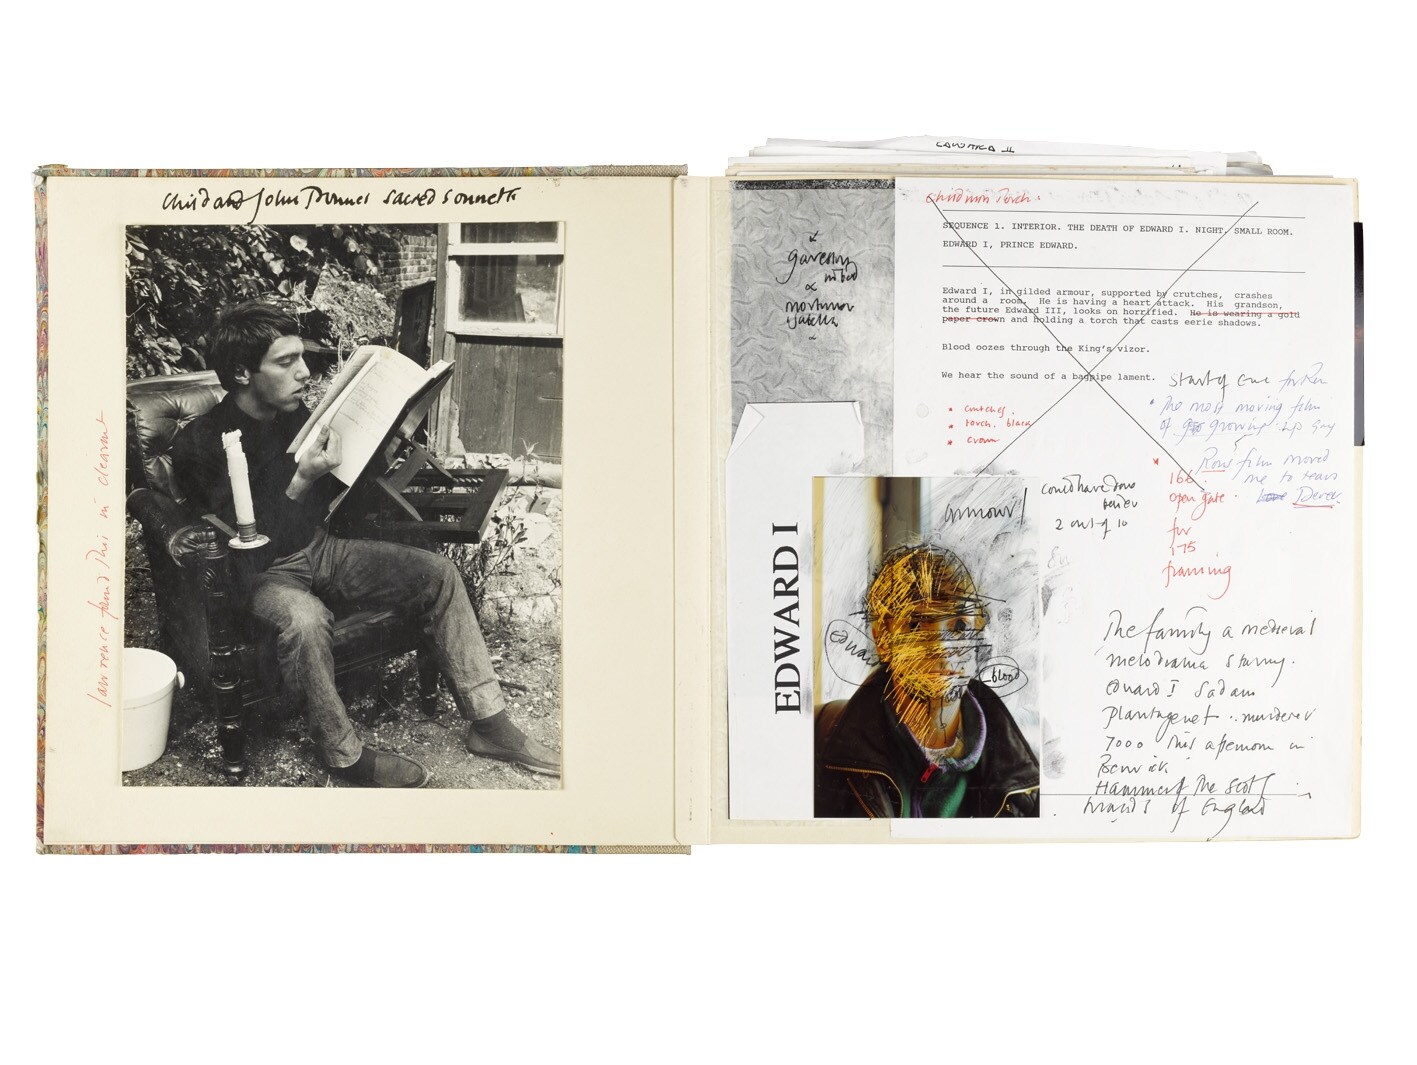 Child and John Donnes sacred sonnets
Lawrence found this in clearout
EDWARD II
gaveston
in bed
mortimor
EDWARD I
Child in Torch.
SEQUENCE 1. INTERIOR. THE DEATH OF EDWARD I. NIGHT. SMALL ROOM.
EDWARD I, PRINCE EDWARD.
Edward I, in gilded armour, supported by crutches, crashes
around a room. He is having a heart attack. His grandson,
the future Edward III, looks on horrified. He is wearing a gold
paper crown and holding a torch that casts eerie shadows.
Blood oozes through the King's vizor.
We hear the sound of a bagpipe lament.
* crutches.
* torch. black
* crown
start of
The most moving film
of growing up gay
Rons film moved
me to tears
love Derek.
166.
open gate.
for
175
framing
could have done
2 out of 10
armour!
edward
blood
The family a medieval
melodrama staring.
Edward I Sadam
Plantagenet.. murderer
7000 this afternoon in
Berwick
Hammer of the Scots
of England